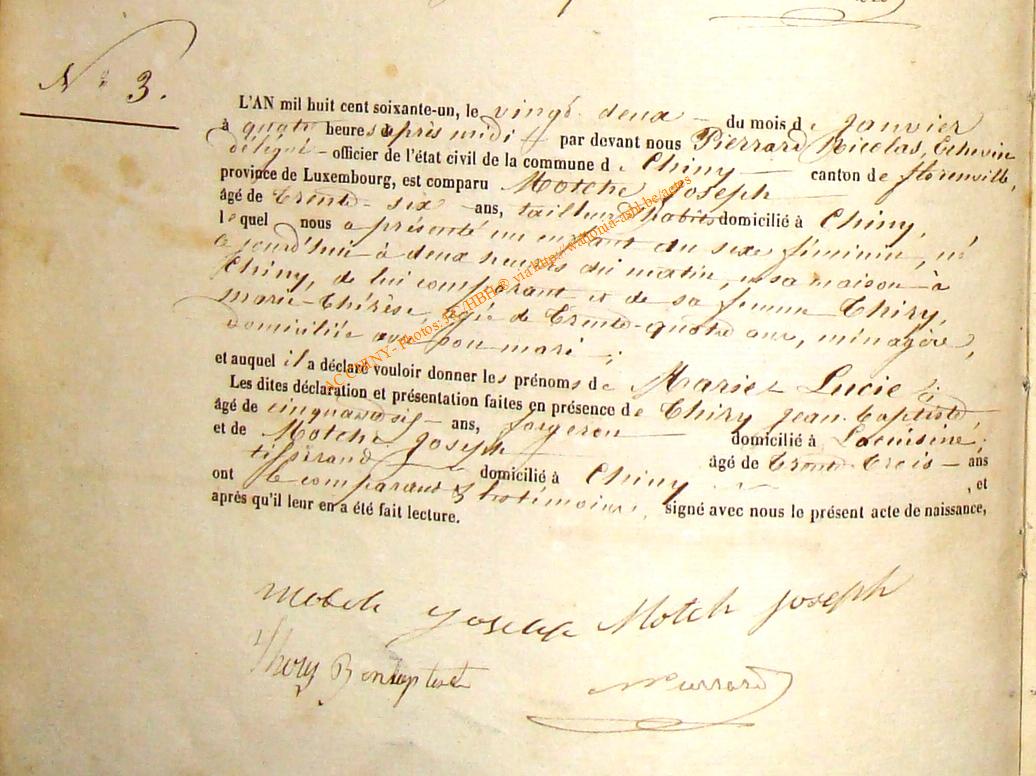 N° 3.
L'AN mil huit cent soixante-un, le vingt deux du mois de Janvier
à quatre heures après midi par devant nous Pierrard Nicolas, Echevin
délégué officier de l'état civil de la commune de Chiny canton de florenville,
province de Luxembourg, est comparu Motch Joseph
âgé de trente-six ans, tailleur d'habits domicilié à Chiny,
lequel nous a présenté un enfant du sexe féminin, né
aujourd'hui à deux heures du matin, en sa maison à
Chiny, de lui comparant et de sa femme Thiry,
marie-thérèse, âgée de trente-quatre ans, ménagère,
domiciliée avec son mari ;
et auquel il a déclaré vouloir donner les prénoms de Marie Lucie
Les dites déclaration et présentation faites en présence de Thiry Jean-Baptiste,
âgé de cinquante six ans, forgeron domicilié à Lacuisine ;
et de Motch Joseph âgé de trente trois ans
tisserand domicilié à Chiny , et
ont le comparant & les témoins, signé avec nous le présent acte de naissance,
après qu'il leur en a été fait lecture.
Motch Joseph Motch Joseph
Thiry Pierrard
AC CHINY - Photos: JC/HBH® via http://wallonia-asbl.be/actes